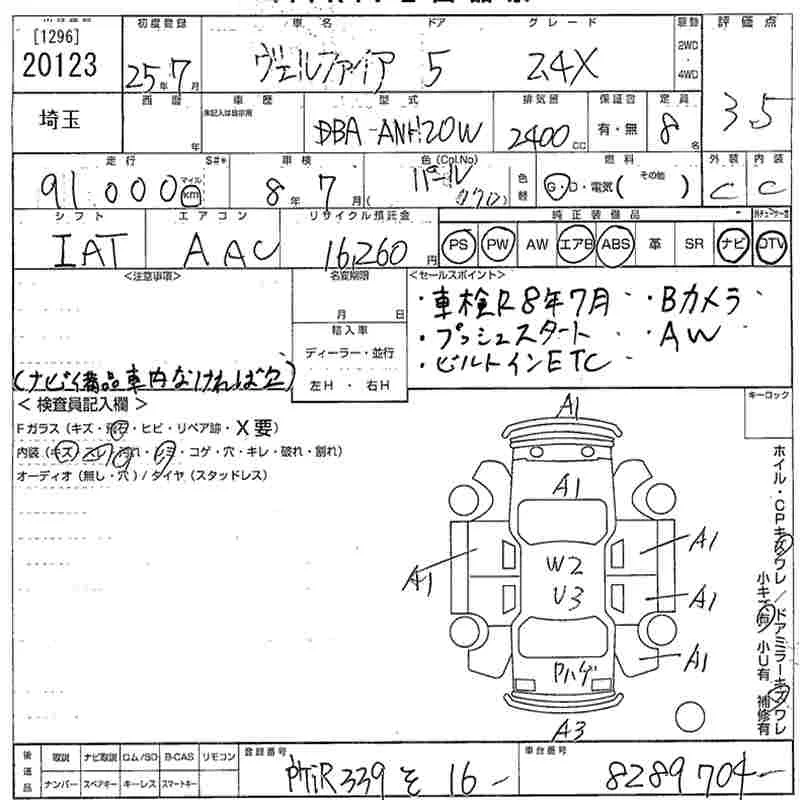 [1296]
20123
初度登録 車名 ドア グレード 駆動 評価点
25年7月 ヴェルファイア 5 2.4X 2WD・4WD 3.5
埼玉
西暦 車歴 型式 排気量 保証書 定員
年 未記入は自家用 DBA-ANH20W 2400cc 有・無 8名
走行 S#* 車検 色(Col,No) 色替 燃料 外装 内装
91,000 マイル km 8年7月 パール (070) G・D・電気( その他 ) C C
シフト エアコン リサイクル預託金 純正装備品
IAT AAC 16,260円 PS PW AW エアB ABS 革 SR ナビ DTV
<注意事項> 名変期限 <セールスポイント>
月 日
・車検R8年7月 ・Bカメラ
・プッシュスタート ・AW
・ビルトインETC
輸入車
ディーラー・並行
左H・右H
(ナビイ備品車内なければ欠)
<検査員記入欄>
キーロック
Fガラス(キズ・飛石・ヒビ・リペア跡・X要)
内装(キズ・スレ・汚れ・シミ・コゲ・穴・キレ・破れ・割れ)
オーディオ(無し・穴)/タイヤ(スタッドレス)
A1
A1
A1 A1
W2
U3
A1
Pハゲ A1
A3
ホイル・CPキズワレ/ドアミラーキズワレ
小キズ有 小U有 補修有
後日品 取説 ナビ取説 ロム/SD B-CAS リモコン 登録番号 車台番号
ナンバー スペアキー キーレス スマートキー 339 そ 16- 8289704